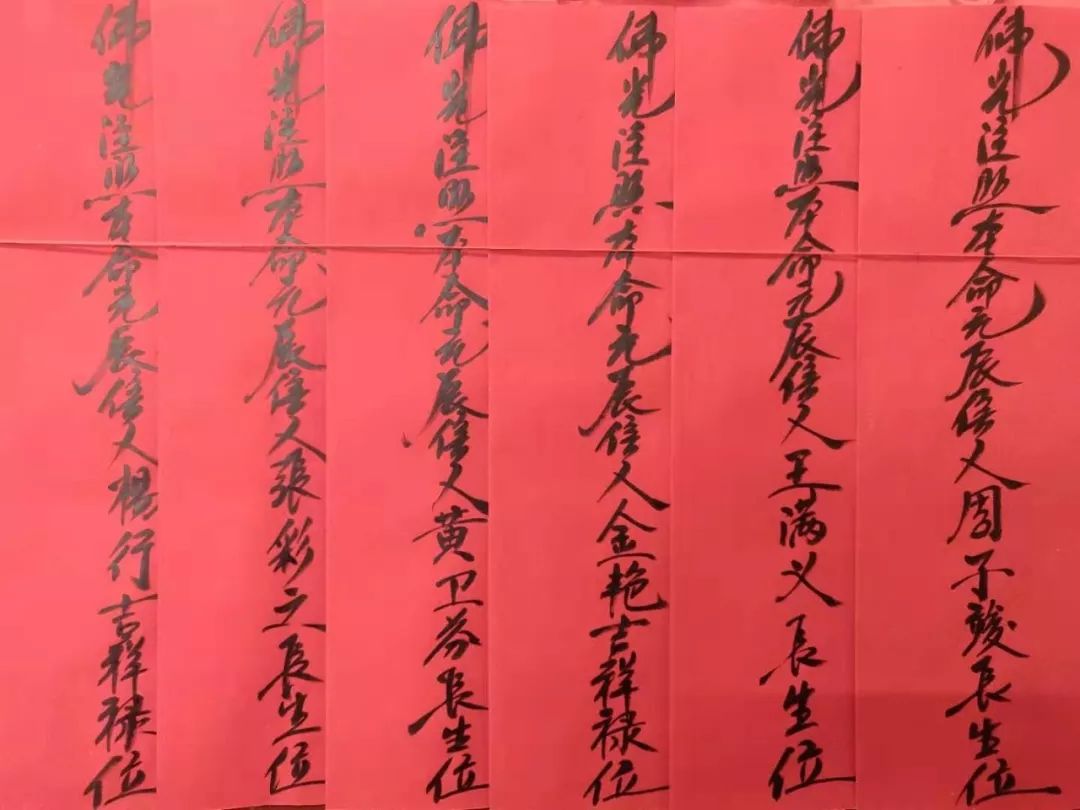 佛光注照本命元辰信人周子竣长生位
佛光注照本命元辰信人王满义长生位
佛光注照本命元辰信人金艳吉祥禄位
佛光注照本命元辰信人黄卫芬长生位
佛光注照本命元辰信人張彩云长生位
佛光注照本命元辰信人楊行吉祥禄位